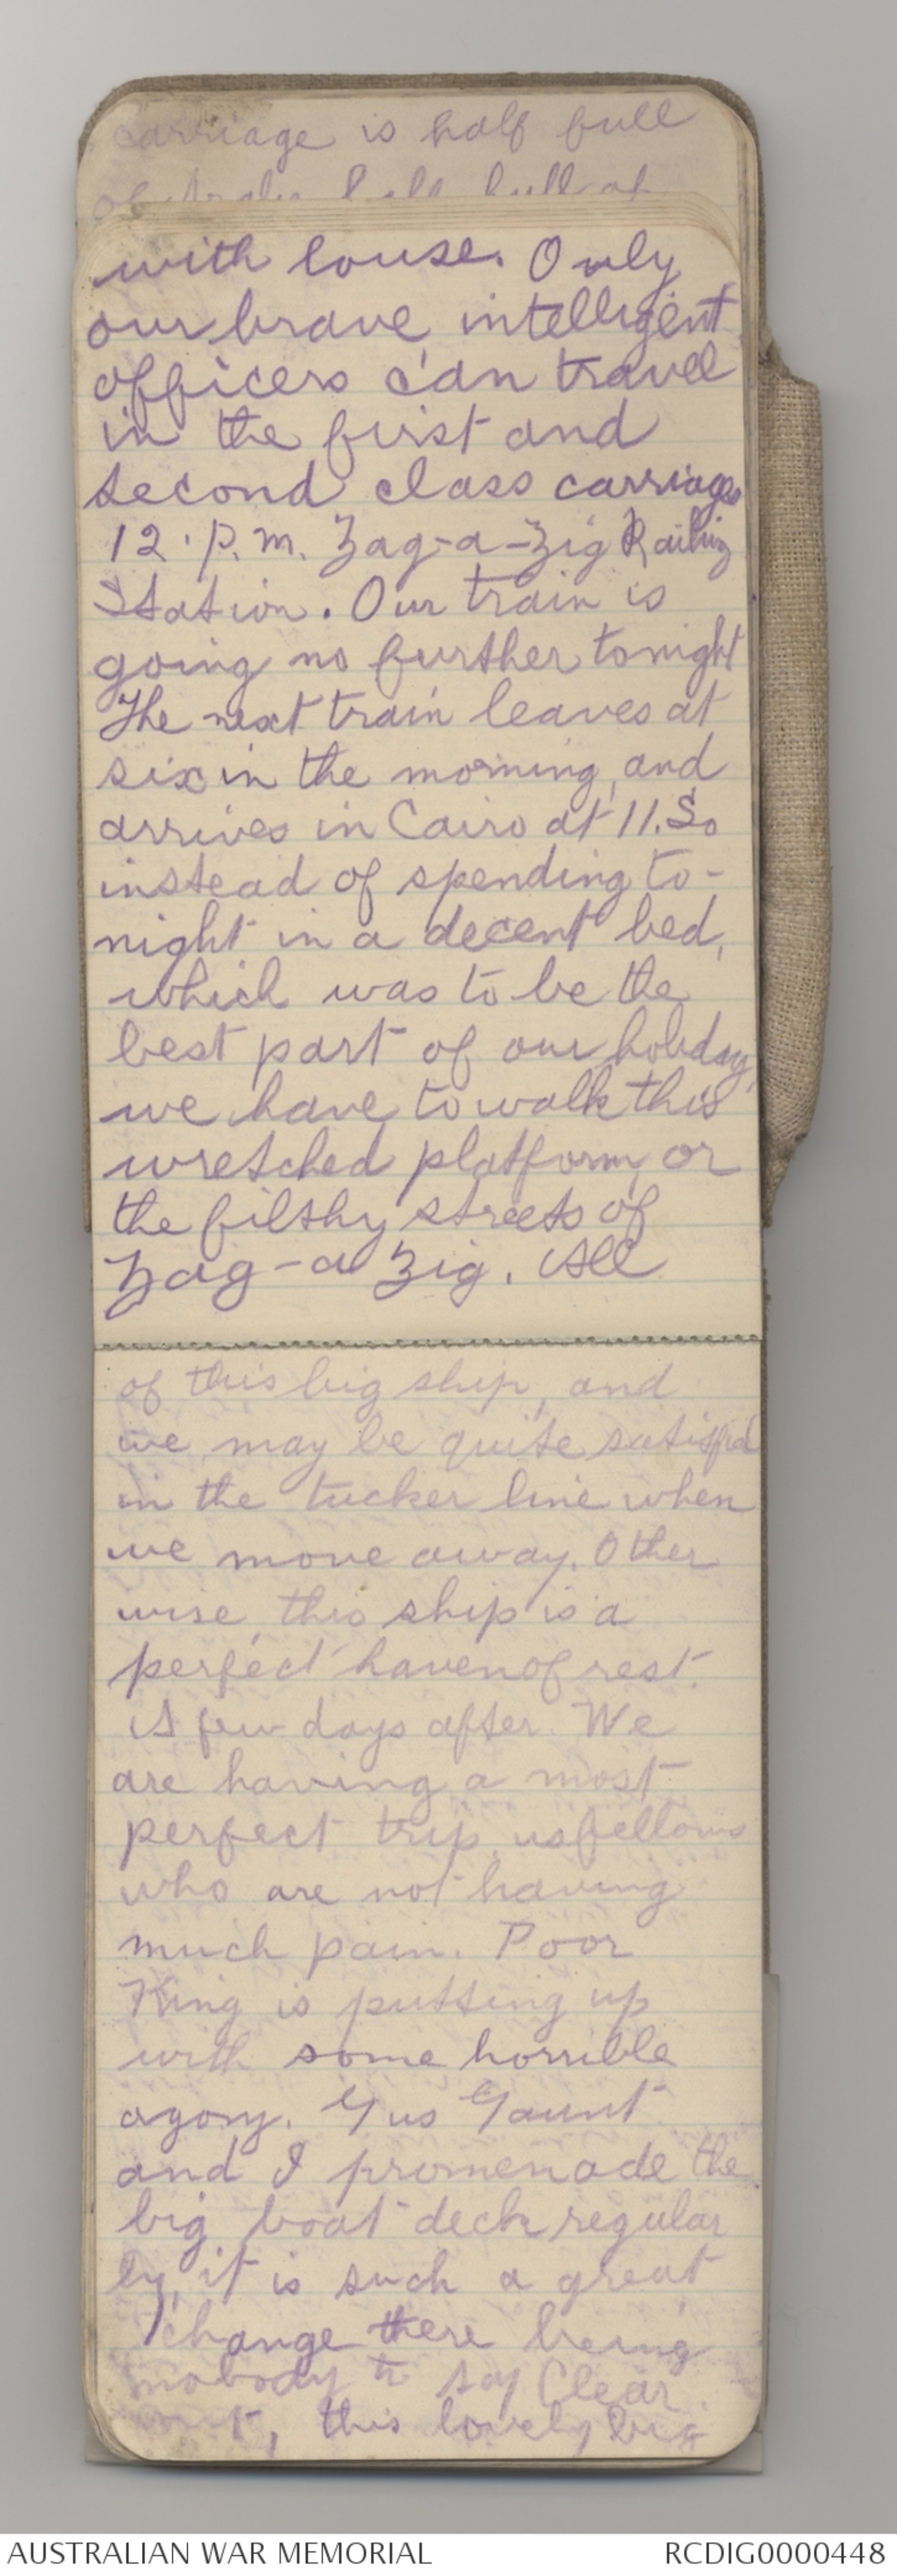 carriage is half full
with louse. Only
our brave intelligent
officers can travel
in the first and
second class carriages
12. P.m. Zag-a-Zig Railway
Station. Our train is
going no further tonight
The next train leaves at
six in the morning, and
arrives in Cairo at 11. So
instead of spending to-
night in a decent bed,
which was to be the
best part of our holiday,
we have to walk this
wretched platform, or
the filthy streets of
Zag-a Zig. All
of this big ship, and
we may be quite satisfied
in the tucker line when
we move away. Other
wise, this ship is a
perfect haven of rest.
A few days after. We
are having a most
perfect trip, us fellows
who are not having
much pain. Poor
King is putting up
with some horrible
agony. Gus Gaunt
and I promenade the
big boat deck regular
ly, it is such a great
change there being
nobody to say Clear
this lovely big
AUSTRALIAN WAR MEMORIAL
RCDIG0000448